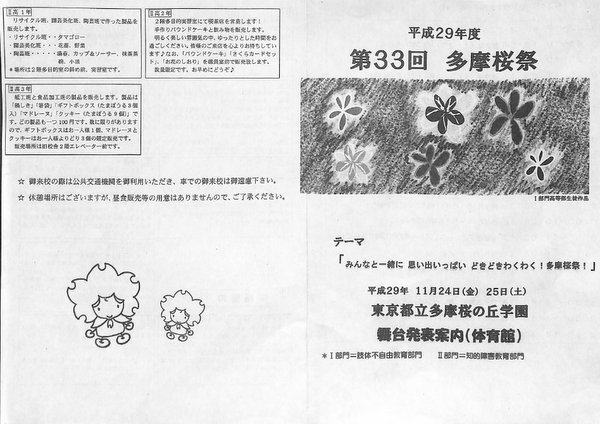 Ⅱ高1年
リサイクル班、園芸美化班、陶芸班で作った製品を
販売します。
・リサイクル班・・タマゴロー
・園芸美化班・・・花苗、野菜
・陶芸班・・・・・湯呑、カップ＆ソーサー、抹茶茶
碗、小皿
＊場所は2階多目的室の斜め前、実習室です。
Ⅱ高2年
2階多目的実習室にて喫茶店を営業します！
手作りパウンドケーキと飲み物を販売します。
明るく楽しい雰囲気の中、ゆったりとした時間をお
過ごしください。皆様のご来店を心よりお待ちしてい
ます♪なお、「パウンドケーキ」「さくらカードセッ
ト」、「お花のしおり」を職員室前で販売致します。
数量限定です。お早めにどうぞ♪
Ⅱ高3年
紙工班と食品加工班の製品を販売します。製品は
「鍋しき」「箸袋」「ギフトボックス（たまぼうろ3個
入）「マドレーヌ」「クッキー（たまぼうろ9個）」で
す。どの製品も一つ100円です。数に限りがあります
ので、ギフトボックスはお一人様1個、マドレーヌと
クッキーはお一人様よりどり3個の限定販売です。
販売場所は旧校舎2階エレベーター前です。
☆ 御来校の際は公共交通機関を御利用いただき、車での御来校は御遠慮下さい。
☆ 休憩場所はございますが、昼食販売等の用意はありませんので、ご了承ください。
平成29年度
第33回 多摩桜祭
Ⅰ部門高等部生徒作品
テーマ
「みんなと一緒に 思い出いっぱい どきどきわくわく！多摩桜祭！」
平成29年 11月24日(金) 25日(土)
東京都立多摩桜の丘学園
舞台発表案内(体育館)
＊Ⅰ部門＝肢体不自由教育部門 Ⅱ部門＝知的障害教育部門